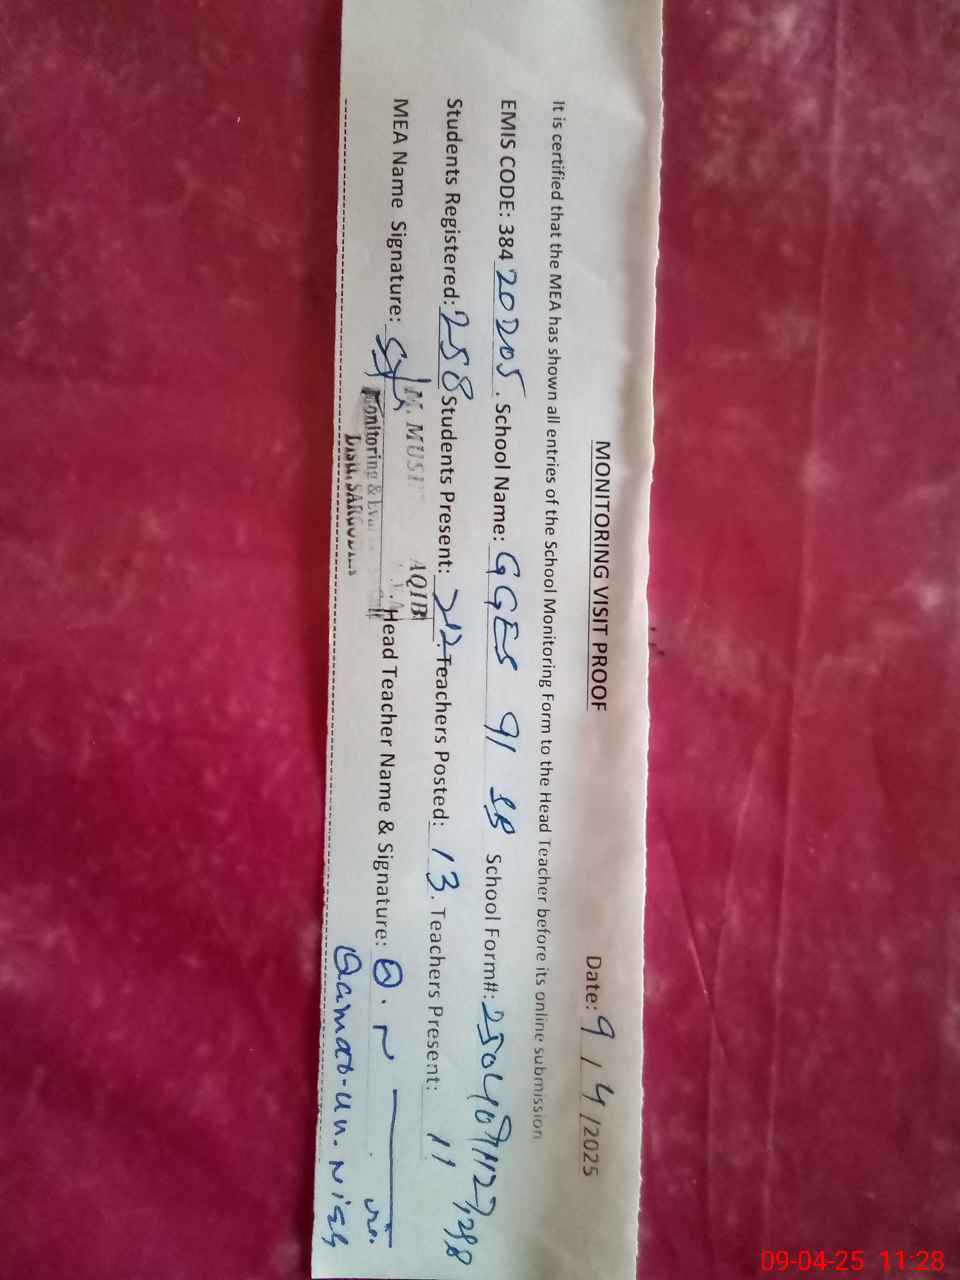 MONITORING VISIT PROOF
Date: 9 / 4 /2025
It is certified that the MEA has shown all entries of the School Monitoring Form to the Head Teacher before its online submission
EMIS CODE: 384 20205 . School Name: GGES 91 SB School Form#:
Students Registered: 258 Students Present: 212 Teachers Posted: 13 . Teachers Present: 11
MEA Name Signature: . Head Teacher Name & Signature: Q. N
M. AQIB
Monitoring &
Qamat-un. Nisa
09-04-25 11:28